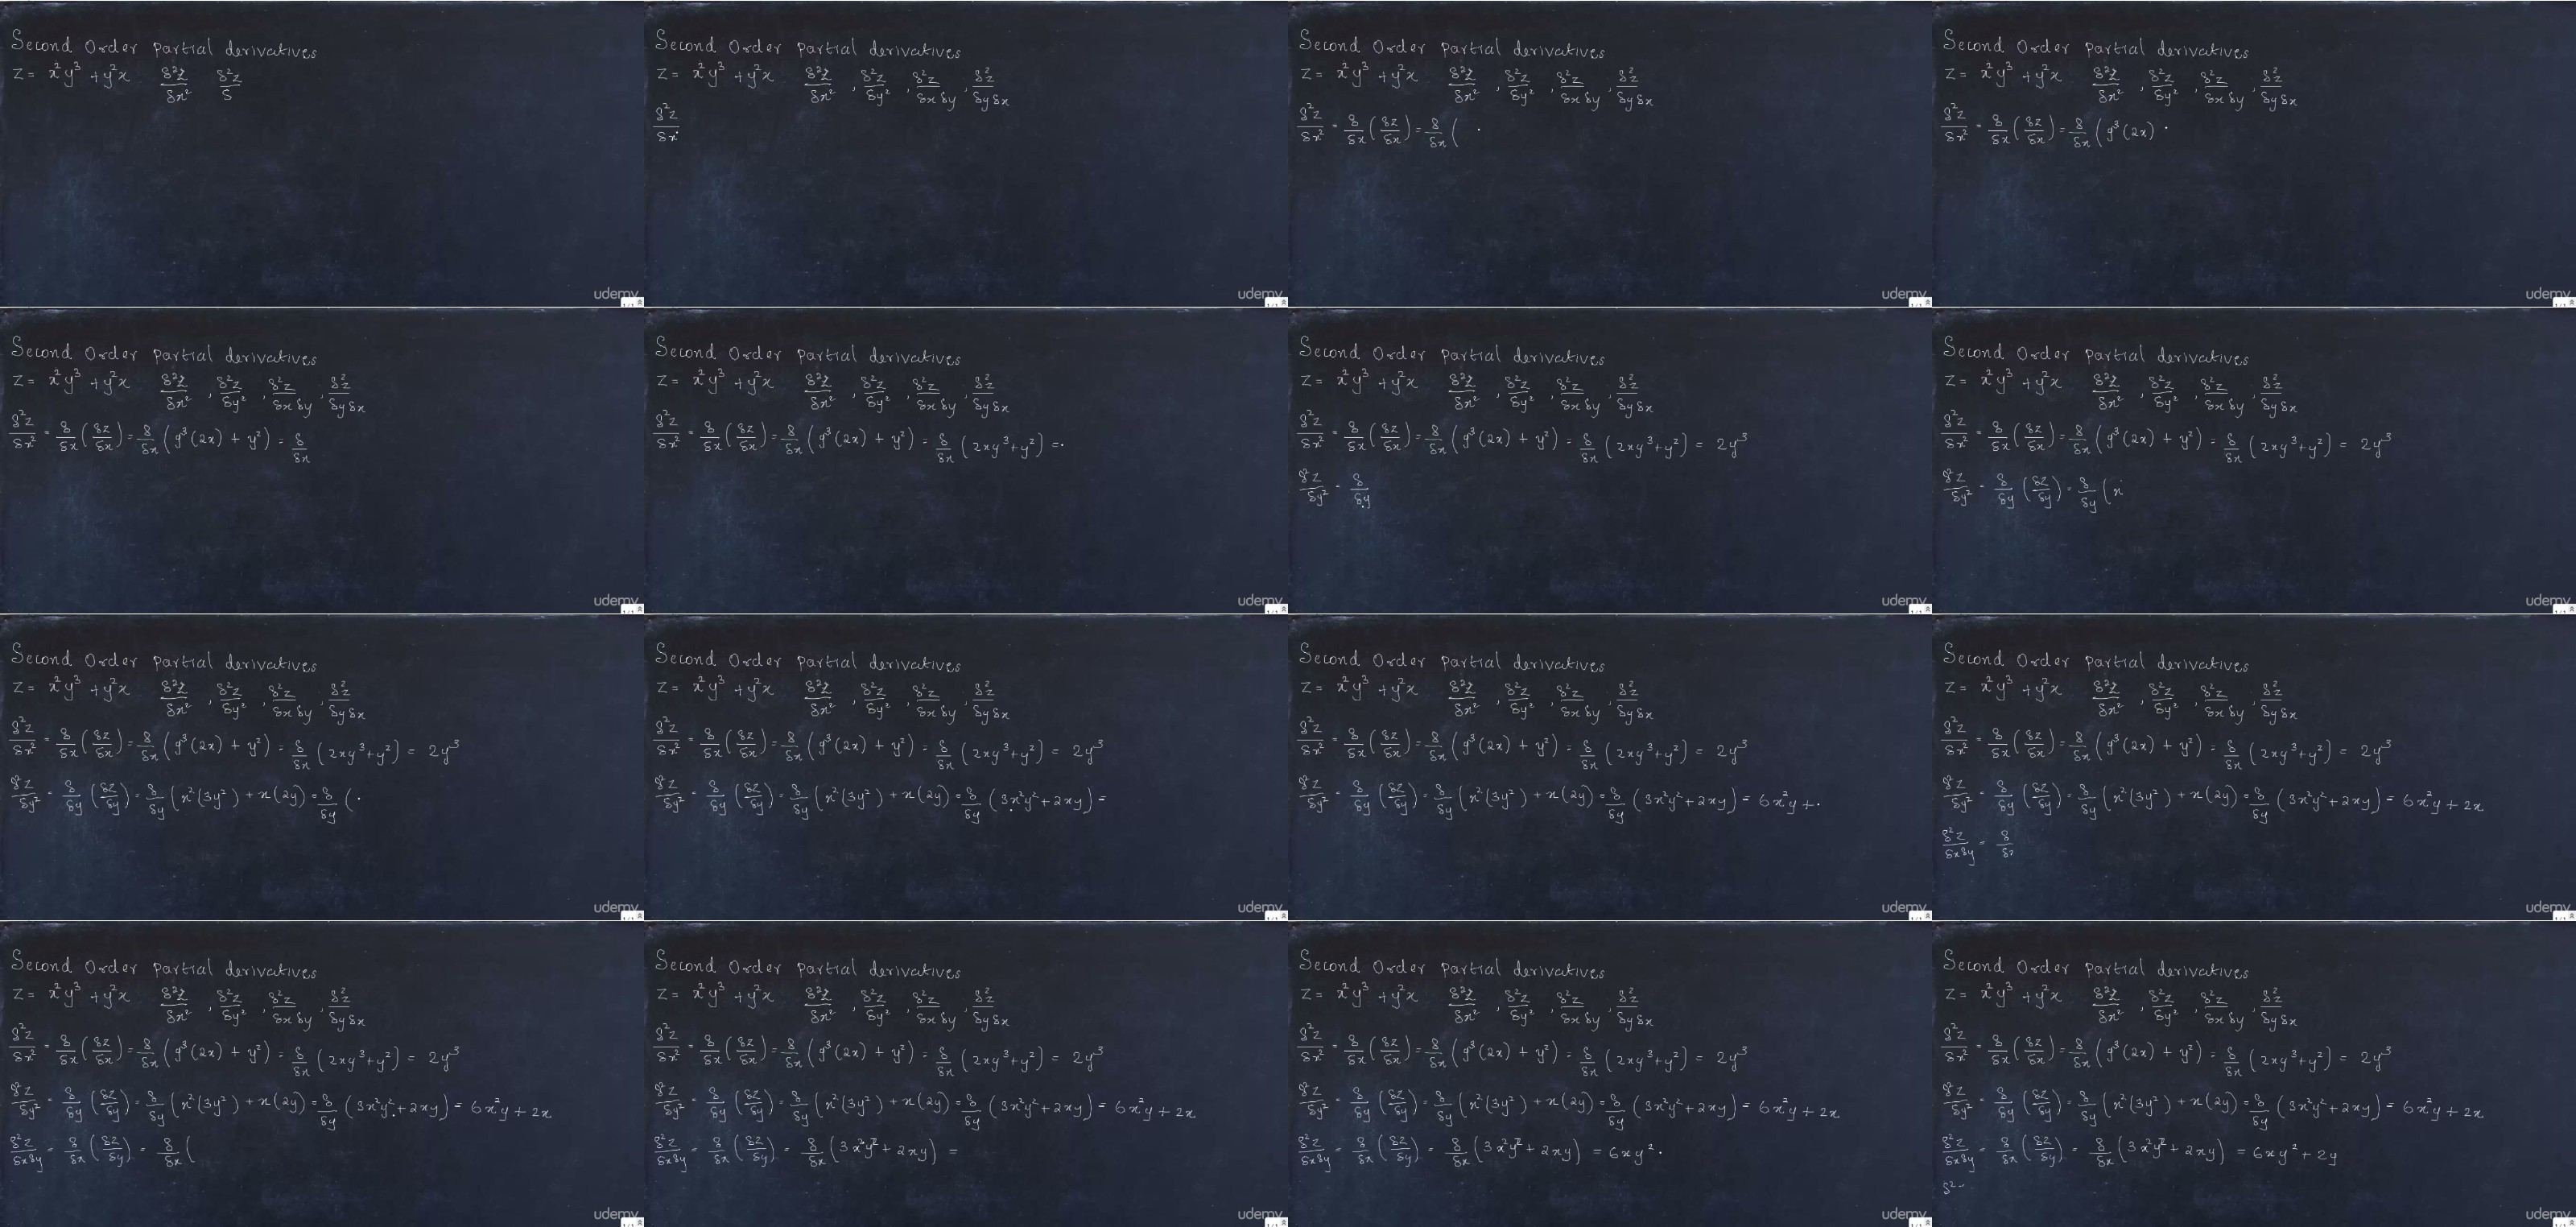 Second Order partial derivatives
z = x²y³ + y²x δ²z/δx² δ²z/δ
udemy
Second Order partial derivatives
z = x²y³ + y²x δ²z/δx² , δ²z/δy² , δ²z/δxδy , δ²z/δyδx
δ²z/δx²
udemy
Second Order partial derivatives
z = x²y³ + y²x δ²z/δx² , δ²z/δy² , δ²z/δxδy , δ²z/δyδx
δ²z/δx² = δ/δx (δz/δx) = δ/δx (
udemy
Second Order partial derivatives
z = x²y³ + y²x δ²z/δx² , δ²z/δy² , δ²z/δxδy , δ²z/δyδx
δ²z/δx² = δ/δx (δz/δx) = δ/δx (y³(2x)
udemy
Second Order partial derivatives
z = x²y³ + y²x δ²z/δx² , δ²z/δy² , δ²z/δxδy , δ²z/δyδx
δ²z/δx² = δ/δx (δz/δx) = δ/δx (y³(2x) + y²) = δ/δx
udemy
Second Order partial derivatives
z = x²y³ + y²x δ²z/δx² , δ²z/δy² , δ²z/δxδy , δ²z/δyδx
δ²z/δx² = δ/δx (δz/δx) = δ/δx (y³(2x) + y²) = δ/δx (2xy³+y²) =
udemy
Second Order partial derivatives
z = x²y³ + y²x δ²z/δx² , δ²z/δy² , δ²z/δxδy , δ²z/δyδx
δ²z/δx² = δ/δx (δz/δx) = δ/δx (y³(2x) + y²) = δ/δx (2xy³+y²) = 2y³
δ²z/δy² = δ/δy
udemy
Second Order partial derivatives
z = x²y³ + y²x δ²z/δx² , δ²z/δy² , δ²z/δxδy , δ²z/δyδx
δ²z/δx² = δ/δx (δz/δx) = δ/δx (y³(2x) + y²) = δ/δx (2xy³+y²) = 2y³
δ²z/δy² = δ/δy (δz/δy) = δ/δy (x
udemy
Second Order partial derivatives
z = x²y³ + y²x δ²z/δx² , δ²z/δy² , δ²z/δxδy , δ²z/δyδx
δ²z/δx² = δ/δx (δz/δx) = δ/δx (y³(2x) + y²) = δ/δx (2xy³+y²) = 2y³
δ²z/δy² = δ/δy (δz/δy) = δ/δy (x²(3y²) + x(2y) = δ/δy (
udemy
Second Order partial derivatives
z = x²y³ + y²x δ²z/δx² , δ²z/δy² , δ²z/δxδy , δ²z/δyδx
δ²z/δx² = δ/δx (δz/δx) = δ/δx (y³(2x) + y²) = δ/δx (2xy³+y²) = 2y³
δ²z/δy² = δ/δy (δz/δy) = δ/δy (x²(3y²) + x(2y) = δ/δy (3x²y² + 2xy) =
udemy
Second Order partial derivatives
z = x²y³ + y²x δ²z/δx² , δ²z/δy² , δ²z/δxδy , δ²z/δyδx
δ²z/δx² = δ/δx (δz/δx) = δ/δx (y³(2x) + y²) = δ/δx (2xy³+y²) = 2y³
δ²z/δy² = δ/δy (δz/δy) = δ/δy (x²(3y²) + x(2y) = δ/δy (3x²y² + 2xy) = 6x²y +
udemy
Second Order partial derivatives
z = x²y³ + y²x δ²z/δx² , δ²z/δy² , δ²z/δxδy , δ²z/δyδx
δ²z/δx² = δ/δx (δz/δx) = δ/δx (y³(2x) + y²) = δ/δx (2xy³+y²) = 2y³
δ²z/δy² = δ/δy (δz/δy) = δ/δy (x²(3y²) + x(2y) = δ/δy (3x²y² + 2xy) = 6x²y + 2x
δ²z/δxδy = δ/δx
udemy
Second Order partial derivatives
z = x²y³ + y²x δ²z/δx² , δ²z/δy² , δ²z/δxδy , δ²z/δyδx
δ²z/δx² = δ/δx (δz/δx) = δ/δx (y³(2x) + y²) = δ/δx (2xy³+y²) = 2y³
δ²z/δy² = δ/δy (δz/δy) = δ/δy (x²(3y²) + x(2y) = δ/δy (3x²y² + 2xy) = 6x²y + 2x
δ²z/δxδy = δ/δx (δz/δy) = δ/δx (
udemy
Second Order partial derivatives
z = x²y³ + y²x δ²z/δx² , δ²z/δy² , δ²z/δxδy , δ²z/δyδx
δ²z/δx² = δ/δx (δz/δx) = δ/δx (y³(2x) + y²) = δ/δx (2xy³+y²) = 2y³
δ²z/δy² = δ/δy (δz/δy) = δ/δy (x²(3y²) + x(2y) = δ/δy (3x²y² + 2xy) = 6x²y + 2x
δ²z/δxδy = δ/δx (δz/δy) = δ/δx (3x²y² + 2xy) =
udemy
Second Order partial derivatives
z = x²y³ + y²x δ²z/δx² , δ²z/δy² , δ²z/δxδy , δ²z/δyδx
δ²z/δx² = δ/δx (δz/δx) = δ/δx (y³(2x) + y²) = δ/δx (2xy³+y²) = 2y³
δ²z/δy² = δ/δy (δz/δy) = δ/δy (x²(3y²) + x(2y) = δ/δy (3x²y² + 2xy) = 6x²y + 2x
δ²z/δxδy = δ/δx (δz/δy) = δ/δx (3x²y² + 2xy) = 6xy²
udemy
Second Order partial derivatives
z = x²y³ + y²x δ²z/δx² , δ²z/δy² , δ²z/δxδy , δ²z/δyδx
δ²z/δx² = δ/δx (δz/δx) = δ/δx (y³(2x) + y²) = δ/δx (2xy³+y²) = 2y³
δ²z/δy² = δ/δy (δz/δy) = δ/δy (x²(3y²) + x(2y) = δ/δy (3x²y² + 2xy) = 6x²y + 2x
δ²z/δxδy = δ/δx (δz/δy) = δ/δx (3x²y² + 2xy) = 6xy² + 2y
δ²
udemy